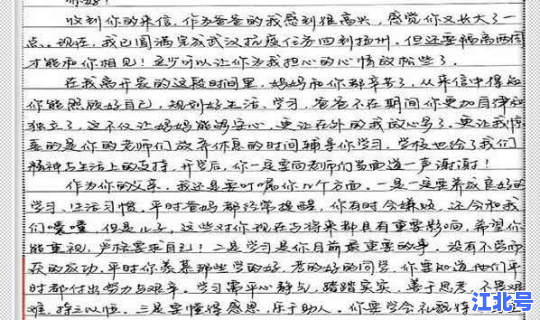 你好！
收到你的来信，作为爸爸的我感到很高兴，感觉你又长大了一
点。现在，我已圆满完成武汉抗疫任务回到扬州，但还要隔离两周
才能和你相见！至少可以让你为我担心的心情放松些了。
在我离开家的这段时间里，妈妈和你都辛苦了，从来信中得知
你能照顾好自己，规划好生活、学习，爸爸不在期间你更加自律和
独立了，这不仅让妈妈能够安心，更让在外的我放心多了。更让我惊
喜的是你的老师们放弃休息的时间辅导你学习，学校也给了我们
精神与生活上的支持，开学后，你一定要向老师们当面道一声谢谢！
作为你的父亲，我还是要叮嘱你几个方面。一是一定要养成良好的
学习、生活习惯，平时爸妈都经常提醒，你有时会嫌烦，还会和我
们嚷嚷，但是儿子，这些对你现在与将来都具有重要影响，希望你
能重视，严格要求自己！二是学习是你目前最重要的事，没有不劳而
获的成功，平时你羡慕那些学的好、考的好的同学，你要知道他们平
时都付出努力与艰辛。学习需平心静气，踏踏实实，善于思考，不畏艰
难，持之以恒。三是要懂得感恩，乐于助人。你要学会礼貌待
江北号